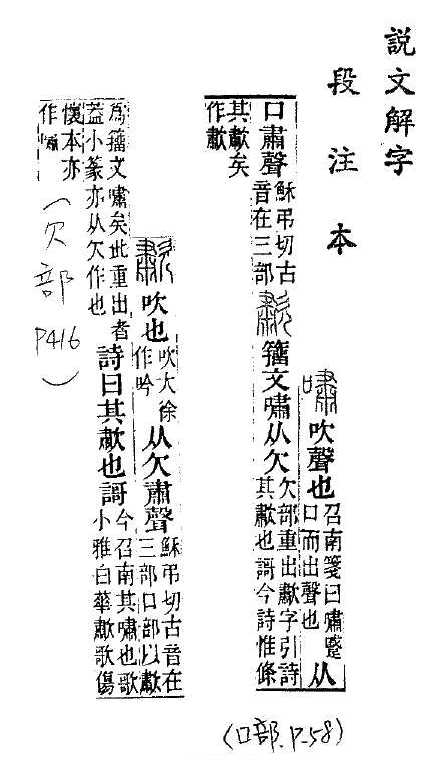 説文解字
段注本
嘯吹聲也召南箋曰嘯蹙口而出聲也从
口肅聲穌弔切古音在三部歗籒文嘯从欠欠部重出歗字引詩其歗也謌今詩惟條
其歗矣作歗
(口部.P.58)
歗吹也吹大徐作吟从欠肅聲穌弔切古音在三部口部以歗
爲籒文嘯矣此重出者蓋小篆亦从欠作也詩曰其歗也謌今召南其嘯也歌小雅白華歗歌傷
懷本亦作嘯
(欠部P416)